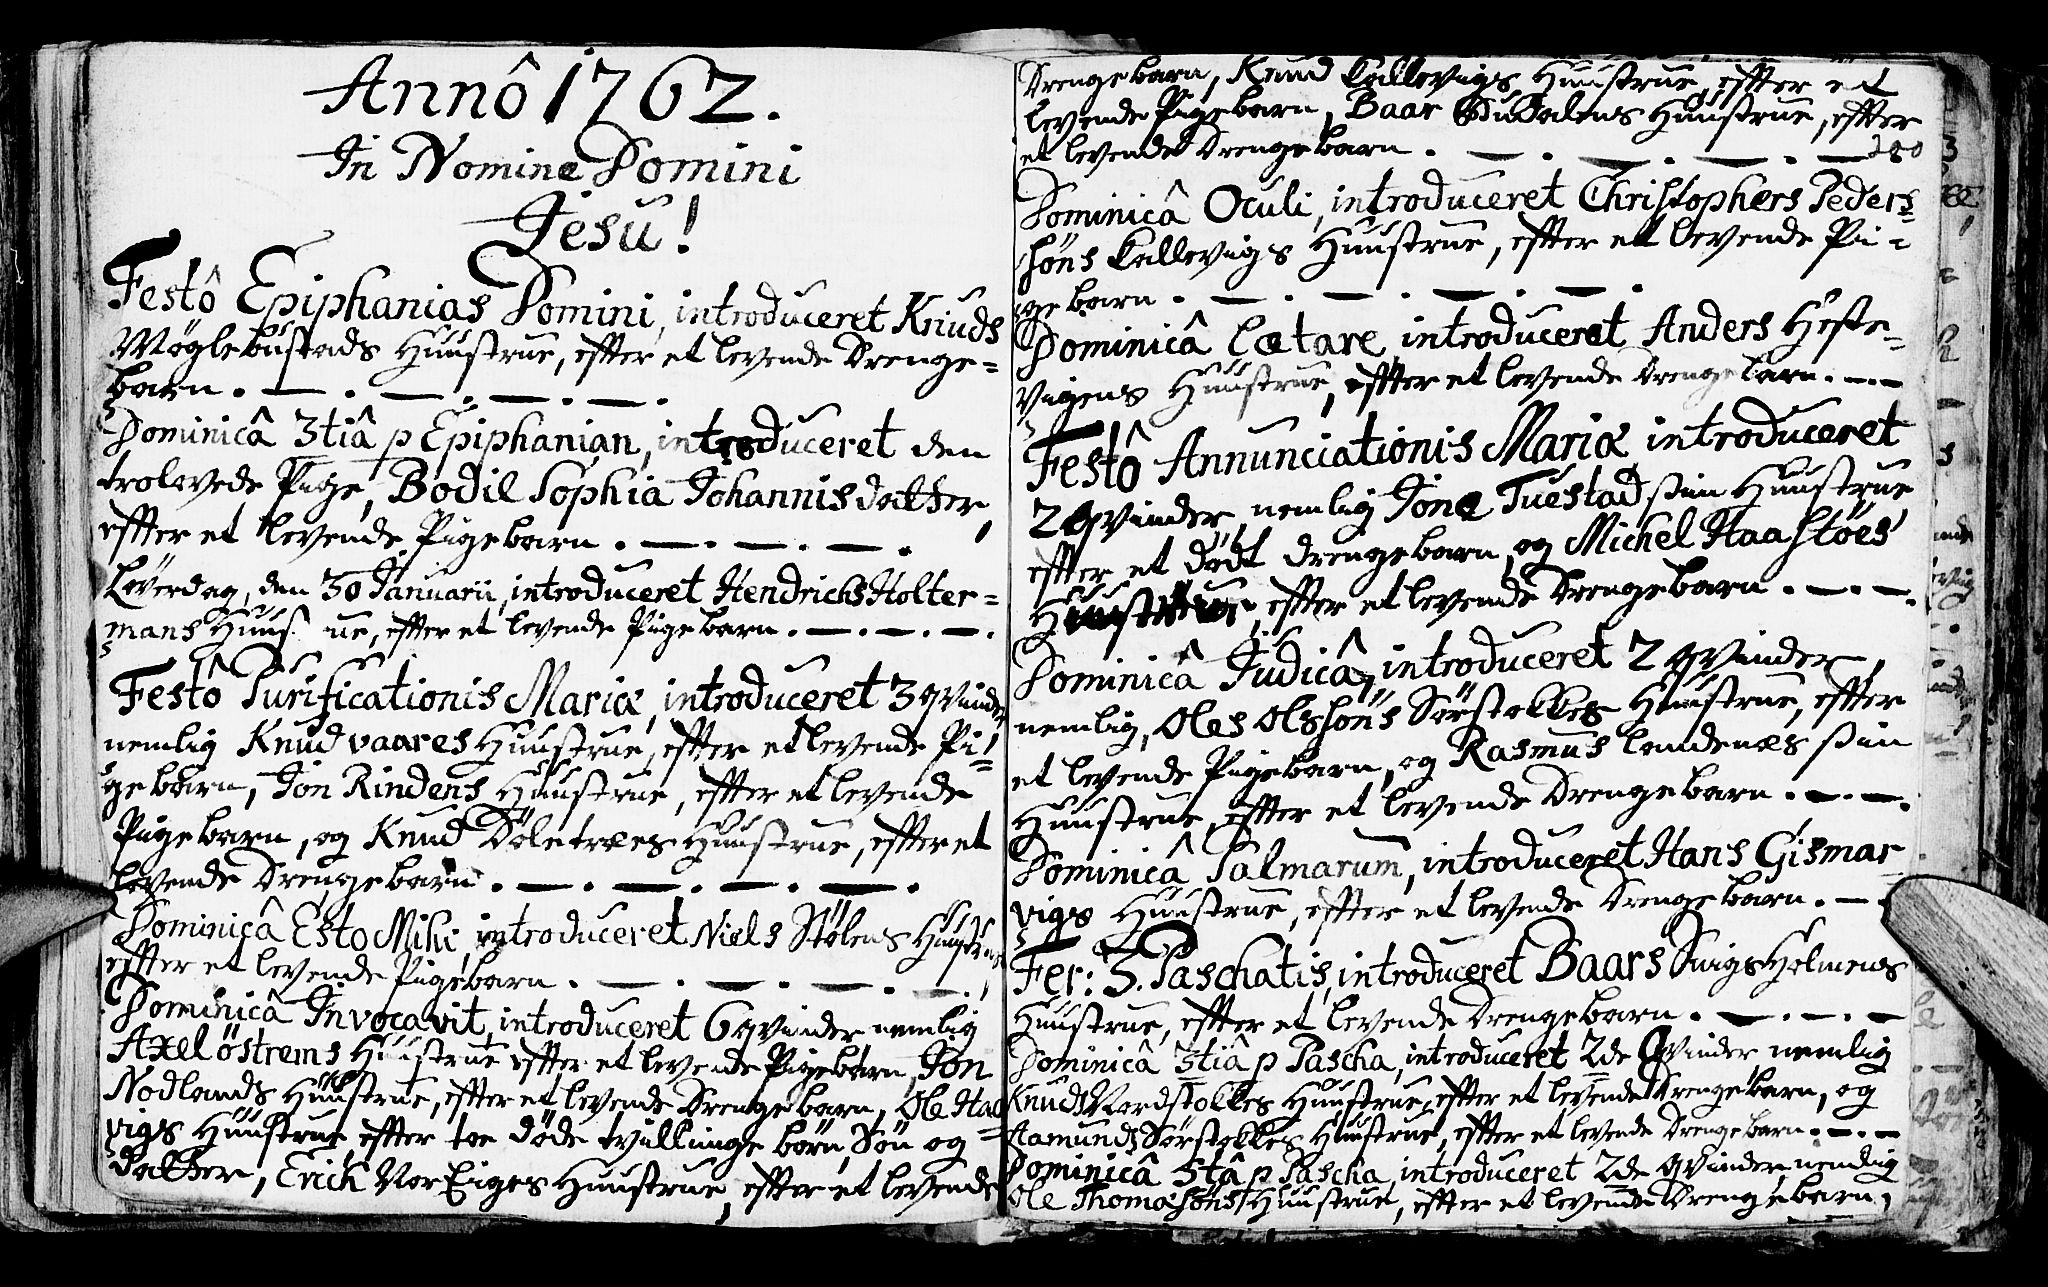 Annô 1762.
In Nomine Domini
Jesu!
Festô Epiphanias Domini, introduceret Knuds
Møglebustads Huustrue, effter et levende Drenge=
barn.
Dominicâ 3tiâ p Epiphanian, introduceret den
trolovede Pige, Bodil Sophia Johannisdatter,
effter et levende Pigebarn.
Løverdag, den 30 Januarii, introduceret Hendrichs Holter=
mans Huus ue, effter et levende Pigebarn.
Festô Purificationis Mariæ, introduceret 3 qvinder
nemlig Knud vaares Huustrue, effter et levende Pi=
gebarn, Jon Rindens Huustrue, effter et levende
Pigebarn, og Knud Döletræes Huustrue, effter et
levende Drengebarn.
Dominicâ Esto Mihi, introduceret Niels Stølens Huustrue
effter et levende Pigebarn.
Dominicâ Invocavit, introduceret 6 qvinder, nemlig
Axel östrems Huustrue effter et levende Pigebarn, Jon
Nodlands Huustrue, effter et levende Drengebarn, Ole Haa=
vigs Huustrue, effter toe døde tvillinge børn, Søn og
Datter, Erich Nor Eiges Huustrue, effter et levende
Drengebarn, Knud Kallevigs Huustrue, effter et
levende Pigebarn, Baar Dudalens Huustrue, effter
et levende Drengebarn. 200
Dominicâ Oculi, introduceret Christophers Peders=
söns Kallevigs Huustrue, effter et levende Pi=
gebarn.
Dominicâ Lætare introduceret Anders Heste=
vigens Huustrue, effter et levende Drengebarn.
Festô Annunciationis Mariæ introduceret
2 qvinder, nemlig Jone Tuestad sin Huustrue
effter et dødt drengebarn, og Michel Haastöes
Huustrue, effter et levende Drengebarn.
Dominicâ Judicâ, introduceret 2 qvinder,
nemlig, Oles Olssöns Sørstokkes Huustrue, effter
et levende Pigebarn, og Rasmus Landenæs sin
Huustrue, effter et levende Drengebarn.
Dominicâ Palmarum, introduceret Hans Gismar=
vigs Huustrue, effter et levende Drengebarn.
Fer: 3. Paschatis, introduceret Baars Svigs Holmens
Huustrue, effter et levende Drengebarn.
Dominicâ 3tiâ p Pascha, introduceret 2de Qvinder nemlig
Knuds Nordstokkes Huustrue, effter et levende Drengebarn, og
Aamunds Sørstokkes Huustrue, effter et levende Drengebarn.
Dominicâ 5tâ p Pascha, introduceret 2de qvinder, nemlig
Ole Thomasöns Huustrue, effter et levende Drengebarn,